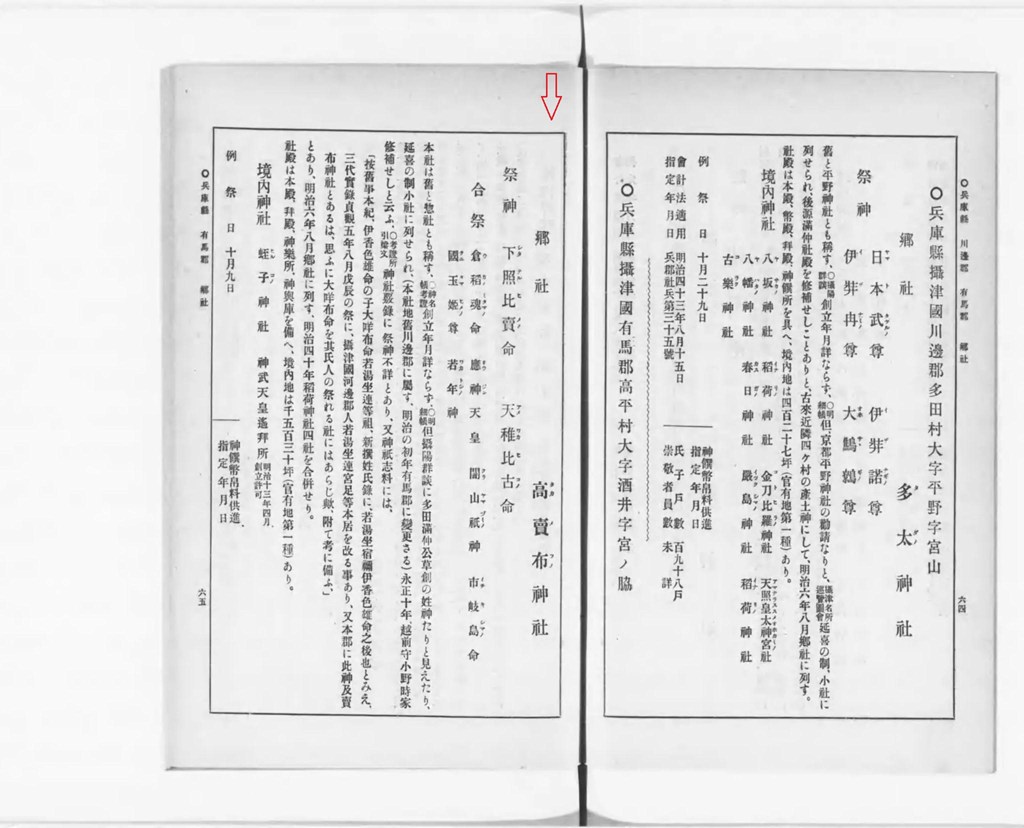 ○兵庫縣 川邊郡 有馬郡 鄕社
六四
○兵庫縣攝津國川邊郡多田村大字平野字宮山
鄕社 多太神社
祭神 日本武尊 伊弉諾尊
伊弉冉尊 大鷦鷯尊
舊と平野神社とも稱す、○攝陽群談創立年月詳ならず、○明細帳但、京都平野神社の勸請なりと、攝津名所巡覽圖會延喜の制、小社に
列せられ、後源滿仲社殿を修補せしことありと、古來近隣四ケ村の產土神にして、明治六年八月鄕社に列す。
社殿は本殿、幣殿、拜殿、神饌所を具へ、境內地は四百二十七坪(官有地第一種)あり。
境內神社 八坂神社 稻荷神社 金刀比羅神社 天照皇太神宮社
八幡神社 春日神社 嚴島神社 稻荷神社
古樂神社
例祭日 十月二十九日
神饌幣帛料供進指定年月日
會計法適用指定年月日 明治四十三年八月十五日兵郡社兵第三十五號
氏子戶數 百九十八戶
崇敬者員數 未詳
○兵庫縣攝津國有馬郡高平村大字酒井字宮ノ脇
鄕社 高賣布神社
祭神 下照比賣命 天稚比古命
合祭 倉稻魂命 應神天皇 闇山祇神 市岐島命
國玉姬尊 若年神
本社は舊と惣社とも稱す、○神名帳考證創立年月詳ならず、○明細帳但攝陽群談に多田滿仲公草創の姓神たりと見えたり、
延喜の制小社に列せられ、(本社地舊川邊郡に屬す、明治の初年有馬郡に變更さる)永正十年、越前守小野時家
修補せしと云ふ、○考證所引棟文神社覈錄に祭神不詳とあり、又神祇志料には、
「按舊事本紀、伊香色雄命の子大咩布命若湯坐連等祖、新撰姓氏錄に、若湯坐宿禰伊香色雄命之後也とみえ、
三代實錄貞觀五年八月戊辰の祭に、攝津國河邊郡人若湯坐連宮足等本居を改る事あり、又本郡に此神及賣
布神社とあるは、思ふに大咩布命を其氏人の祭れる社にはあらじ歟、附て考に備ふ」
とあり、明治六年八月鄕社に列す、明治四十年稻荷神社四社を合併せり。
社殿は本殿、拜殿、神樂所、神輿庫を備へ、境內地は千五百三十坪(官有地第一種)あり。
境內神社 蛭子神社 神武天皇遙拜所 明治十三年四月創立許可
例祭日 十月九日
神饌幣帛料供進指定年月日
○兵庫縣 有馬郡 鄕社
六五